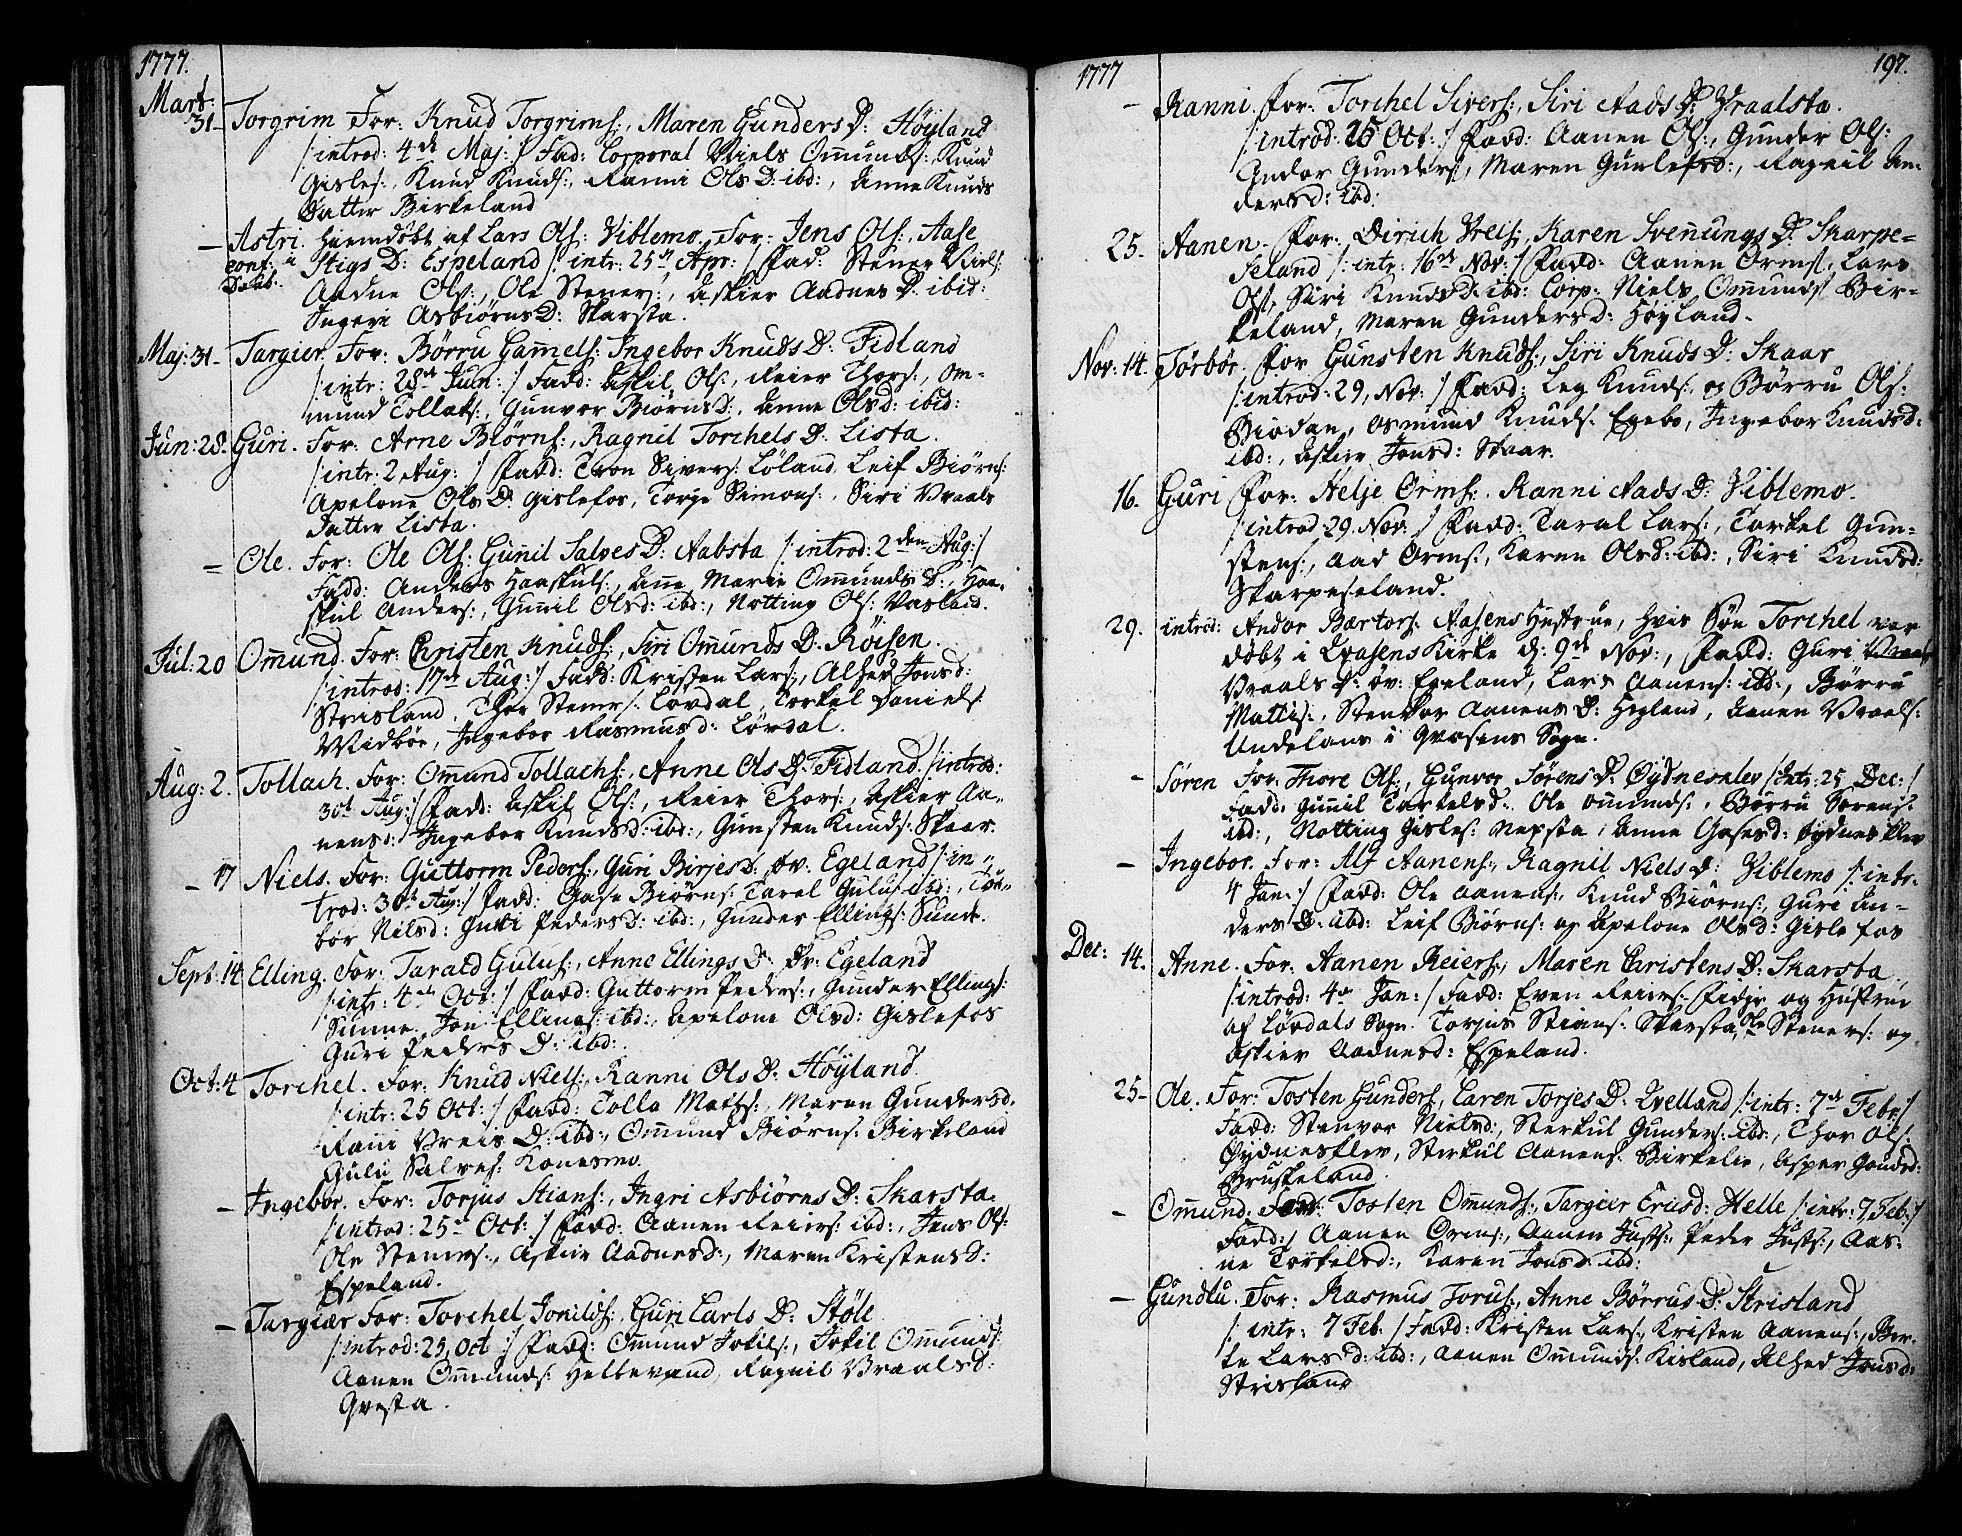 1777.
Mart:
31- Torgrim For: Knud Torgrims:, Maren Gunders D: Høyland
/:introd: 4de Maj:/ Fad: Corporal Niels Omunds: Knud
Gisles:, Knud Knuds:, Ranni Ols D: ibd:, Anne Knuds
Datter Birkeland
- Astri. hiemdøbt af Lars Ols: Viblemo. For: Jens Ols:, Aase
conf: i Stigs D: Espeland /:intr: 25de Apr:/ Fad: Stener Niels:
Aadne Ols:, Ole Steners:, Askier Aadnes D: ibid:
Ingeri Asbiørns D: Skarsta.
Maj: 31- Targier. For: Børru Gamels: Ingebor Knuds D: Fidland
/:intr: 28de Jun:/ Fadd: Askil Ols:, Reier Thors:, Om-
mund Tollaks:, Gunvor Biørns D:, Anne Olsd: ibid:
Jun: 28- Guri. For: Arne Biørns:, Ragnil Torchels D: Lista.
/:intr: 2 Aug:/ Fadd: Tron Sivers: Løland, Leif Biørns:
Apelone Ols D: Gislefos, Torje Simons:, Siri Vraals
Datter Lista.
= Ole. For: Ole Ols: Gunil Salves D: Aabsta /:introd: 2den Aug:/
Fadd: Anders Haaskuls:, Ane Marie Omunds D:, Haa-
skul Anders:, Gunil Olsd: ibd:, Notting Ols:
Jul: 20 Omund. For: Christen Knuds:, Siri Omunds D: Røisen.
/:introd: 17de Aug:/ Fadd: Kristen Lars:, Alhed Jonsd:
Strisland, Thor Steners: Lovdal, Torkel Daniels:
Widbøe, Ingebor Rasmusd: Lövdal.
Aug: 2. Tollach. For: Omund Tollachs:, Anne Ols D: Fidland. /:introd:
30te Aug:/ Fadd: Askil Ols:, Reier Thors:, Askier Aa-
nensd: Ingebor Knudsd: ibd:, Gunsten Knuds: Skaar.
- 17 Niels. For: Guttorm Peders:, Guri Birjes D: Øv: Egeland /:in-
trod: 30te Aug:/ Fadd: Gase Biørns: Taral Guluf: ibd:, Tor-
bør Nilsd: Guri Pedersd: ibd:, Gunder Ellings: Sunde.
Sept: 14 Elling. For: Tarald Guluf:, Anne Ellings D: Øv: Egeland
/:intr: 4de Oct:/ Fadd: Guttorm Peders:, Gunder Ellings:
Sunne. Jon Ellings: ibd:, Apelone Olsd: Gislefos
Guri Peders D: ibd:.
Oct: 4 Torchel. For: Knud Niels:, Ranni Ols D: Høyland.
/:intr: 25 Oct:/ Fadd: Tolla Mattis:, Maren Gundersd:
Rani Vreis D: ibd:, Omund Biørns: Birkeland
Salves: Konesmo.
- Ingebor. For: Torjus Stians:, Ingri Asbiørns D: Skarsta.
/:introd: 25de Oct:/ Fadd: Aanen Reiers: ibd:, Jens Ols:
Ole Steners:, Askier Aadnesd:, Maren Kristens D:
Espeland.
- Targiær For: Torchel Jonilds:, Guri Carls D: Støle
/:introd: 25, Oct:/ Fadd: Omund Jokils:, Jokil Omunds:
Aanen Omunds: Hellevand, Ragnil Vraalsd:
Qvesta.
1777 197.
- Ranni. For: Torchel Sivers:, Siri Aads D: Vraalsta.
/:introd: 25 Oct:/ Fadd: Aanen Ols:, Gunder Ols:
Gudor Gunders:, Maren Gunlefsd:, Ragnil An-
dersd: ibd:
25. Aanen. For: Dirich Vreis:, Karen Svenungs D: Skarpe=
seland /:intr: 16de Nov:/ Fadd: Aanen Orms:, Lars
Ols:, Siri Knudsd: ibd: Corp: Niels Omunds Bir-
keland, Maren Gundersd: Høyland.
Nov: 14. Tørbør. For Gunsten Knuds:, Siri Knuds D: Skaar
/:introd: 29, Nov:/ Fadd: Leg Knuds: og Børru Ols:
Biødan, Osmund Knuds: Egebo, Ingebor Knudsd:
ibd:, Askier Jonsd: Skaar.
16. Guri For: Helje Orms:. Ranni Aads D: Viblemo.
/:introd: 29. Nov:/ Fadd: Taral Lars:, Torkel Gun-
stens:, Aad Orms:, Karen Olsd: ibd:, Siri Knudsd:
Skarpeseland.
29. introd: Andor Bærtors: Aasens Hustrue, hvis Søn Torchel var
døbt i Qvasens Kirke d: 9de Nov:, Fadd: Guri
Vraals D: øv: Egeland, Lars Aanens: ibd:, Børru
Mattis:, Stenvor Aanens D: Hegland, Aanen Vraals:
Undeland i Qvasens Sogn.
- Søren For: Thore Ols:, Gunvor Sørens D: Øydnesklev /:intr: 25 Dec:/
Fadd: Gunil Torkelsd: Ole Omunds:, Børru Sørens:
ibd:, Notting Gisles: Nepsta, Anne Gasesd: Øydnesklev
- Ingebor. For: Alf Aanens:, Ragnil Niels D: Viblemo /:intr:
4 Jan:/ Fadd: Ole Aanens:, Knud Biørns:, Guri An-
ders D: ibd: Leif Biørns: og Apelone Olsd: Gislefos
Dec: 14. Anne. For: Aanen Reiers:, Maren Christens D: Skarsta
/:introd: 4de Jan:/ Fadd: Even Reiers: Fidje og Hustrue
af Lövdals Sogn. Torjus Stians: Skarsta, Ole Steners: og
Askier Aadnesd: Espeland.
25- Ole. For: Tosten Gunders:, Caren Torjes D: Qvelland /:intr: 7de Febr:/
Fadd: Stenvor Nielsd:, Sterkul Gunders: ibd:, Thor Ols:
Øydnesklev, Sterkul Aanens: Birkelie, Asper
Bruskeland.
- Omund. For: Tosten Omunds:, Targier Erisd: Helle /:intr: 7 Feb:/
Fadd: Aanen Orms:, Aanen Justs: Peder Justs:, Aas-
ne Torkelsd:, Karen Jonsd: ibd:
- Gundlu. For: Rasmus Torus:, Anne Børrus D: Strisland
/:intr: 7 Feb:/ Fadd: Kristen Lars:, Kristen Aanens:, Ber-
te Larsd: ibd:, Aanen Omunds: Kisland, Alhed Jonsd:
Strisland